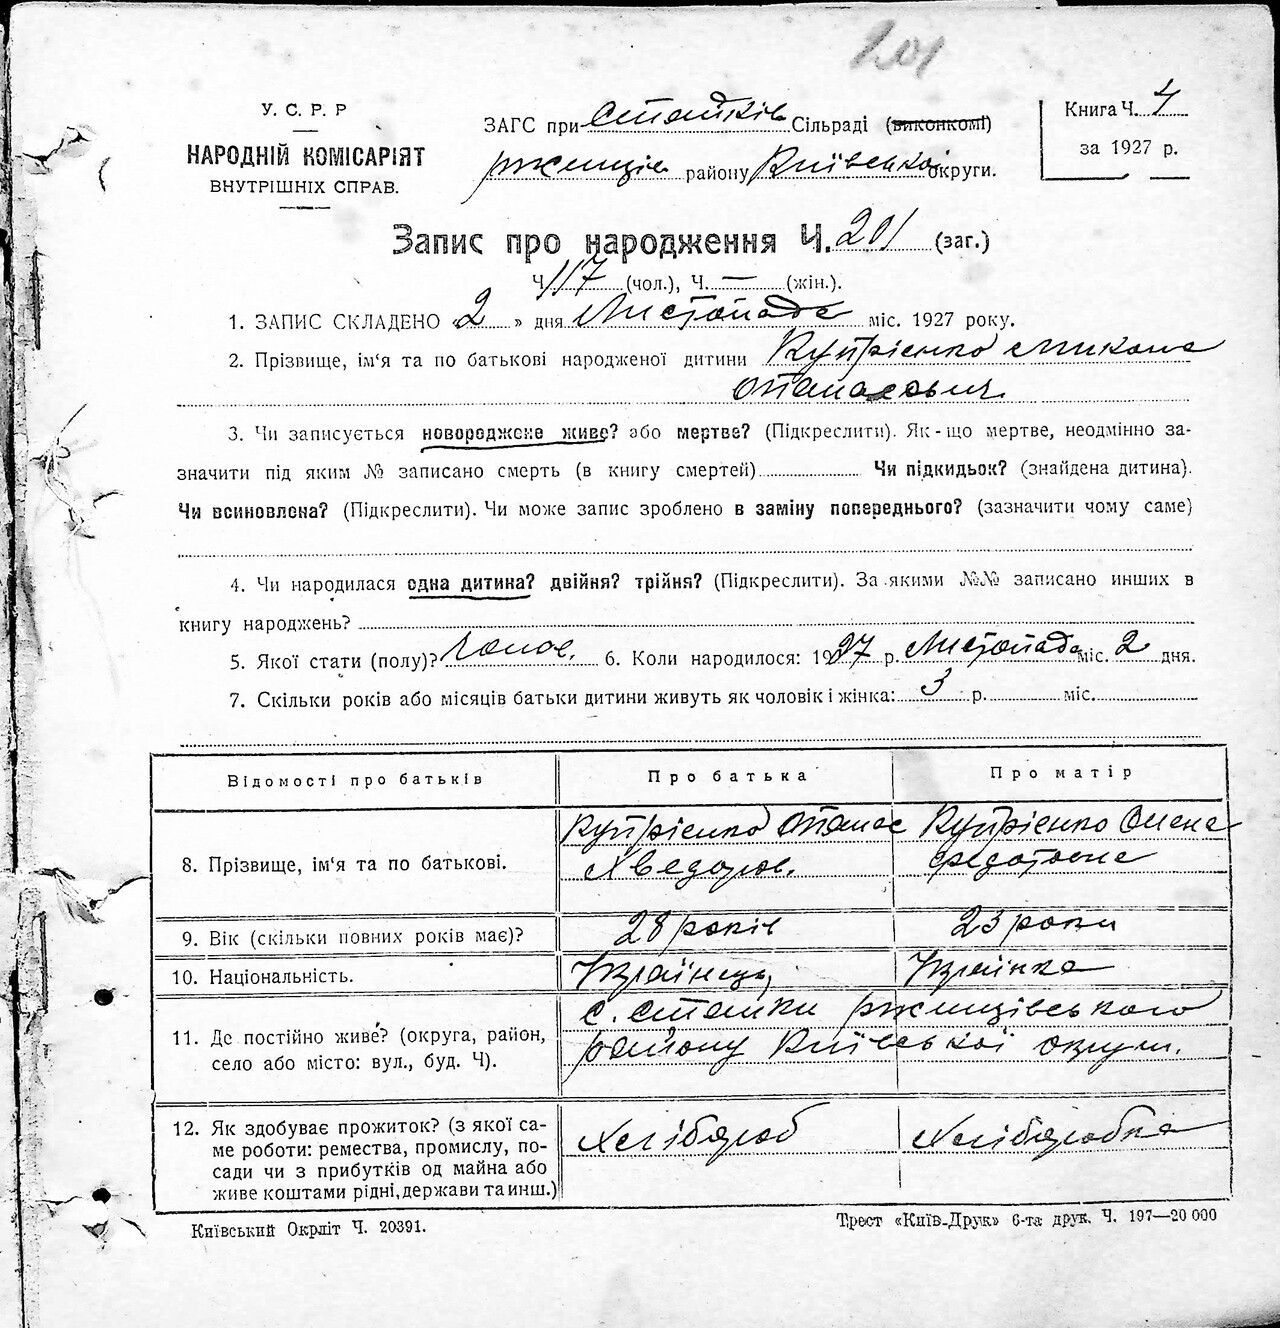 201
У. С. Р. Р
НАРОДНІЙ КОМІСАРІЯТ
ВНУТРІШНІХ СПРАВ.
ЗАГС при Стайків Сільраді (виконкомі)
ржищів району Київської округи.
Книга Ч. 4
за 1927 р.
Запис про народження Ч. 201 (заг.)
Ч 117 (чол.), Ч. — (жін.).
1. ЗАПИС СКЛАДЕНО 2 » дня Листопада міс. 1927 року.
2. Прізвище, ім'я та по батькові народженої дитини Купрієнко Микола
Опанасович
3. Чи записується новороджене живе? або мертве? (Підкреслити). Як-що мертве, неодмінно за-
значити під яким № записано смерть (в книгу смертей) Чи підкидьок? (знайдена дитина).
Чи всиновлена? (Підкреслити). Чи може запис зроблено в заміну попереднього? (зазначити чому саме)
4. Чи народилася одна дитина? двійня? трійня? (Підкреслити). За якими №№ записано инших в
книгу народжень?
5. Якої стати (полу)? чолов. 6. Коли народилося: 1927 р. Листопада міс. 2 дня.
7. Скільки років або місяців батьки дитини живуть як чоловік і жінка: 3 р. міс.
Відомості про батьків Про батька Про матір
8. Прізвище, ім'я та по батькові.
Купрієнко Опанас
Хведоров.
Купрієнко Олена
Федотовна
9. Вік (скільки повних років має)? 28 років 23 роки
10. Національність. Українець, Українка
11. Де постійно живе? (округа, район,
село або місто: вул., буд. Ч).
с. Стайки ржищівського
району Київської округи.
12. Як здобуває прожиток? (з якої са-
ме роботи: ремества, промислу, по-
сади чи з прибутків од майна або
живе коштами рідні, держави та инш.)
Хлібороб Хліборобка
Київський Окрліт Ч. 20391.
Трест «Київ-Друк» 6-та друк. Ч. 197—20 000